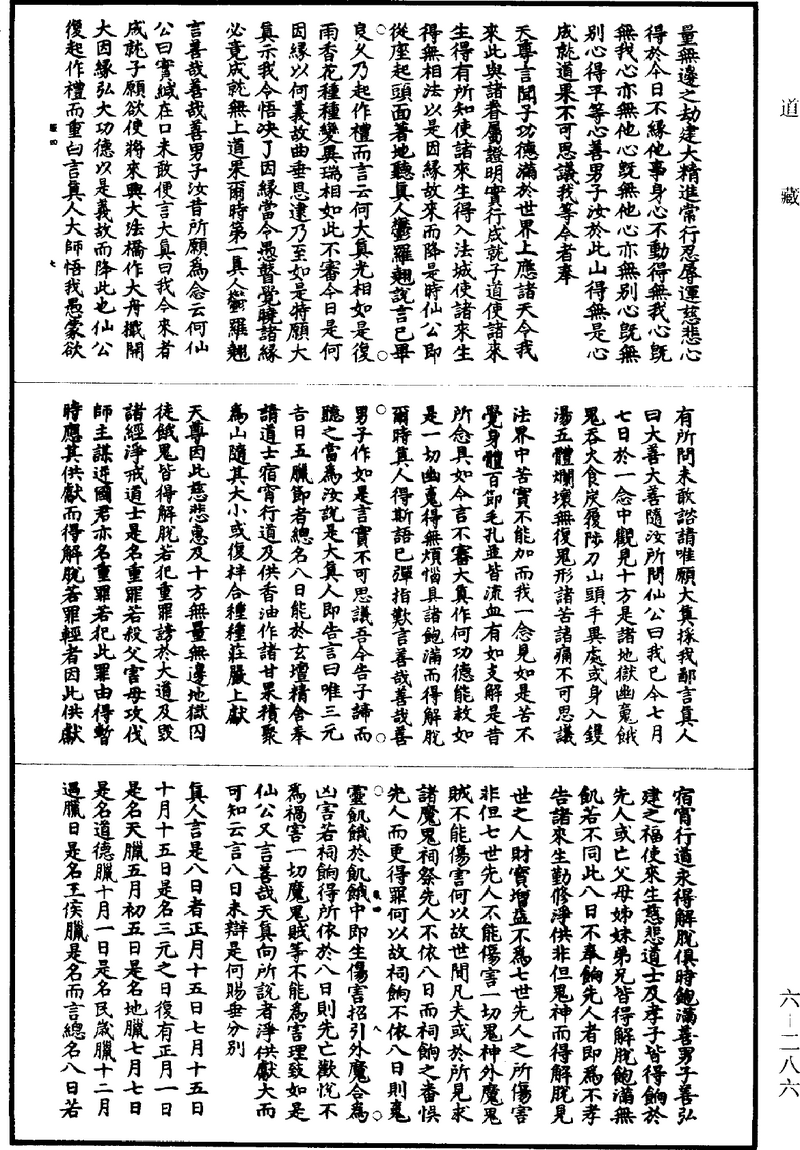 道藏
六—二八六
量無邊之劫建大精進常行忍辱運慈悲心
得於今日不緣他事身心不動得無我心既
無我心亦無他心既無他心亦無別心既無
別心得平等心善男子汝於此山得無是心
成就道果不可思議我等今者奉
天尊言聞子功德滿於世界上應諸天今我
來此與諸眷屬證明實行成就子道使諸來
生得有所知使諸來生得入法城使諸來生
得無相法以是因緣故來而降是時仙公即
從座起頭面著地聽真人鬱羅翹說言已畢
良久乃起作禮而言云何大真光相如是復
雨香花種種變異瑞相如此不審今日是何
因緣以何義故曲垂恩逮乃至如是特願大
真示我令悟決了因緣當令愚瞽覺曉諸緣
必竟成就無上道果爾時第一真人鬱羅翹
言善哉善哉善男子汝昔所願為念云何仙
公曰實緘在口未敢便言大真曰我今來者
成就子願欲使將來興大法橋作大舟檝開
大因緣弘大功德以是義故而降此也仙公
復起作禮而重白言真人大師悟我愚蒙欲
有所問未敢諮請唯願大真採我鄙言真人
曰大善大善隨汝所問仙公曰我已今七月
七日於一念中觀見十方是諸地獄幽魂餓
鬼吞火食炭履陟刀山頭手異處或身入鑊
湯五體爛壞無復鬼形諸苦諸痛不可思議
法界中苦實不能加而我一念見如是苦不
覺身體百節毛孔並皆流血有如支解是昔
所念具如今言不審大真作何功德能救如
是一切幽魂得無煩惱具諸飽滿而得解脫
爾時真人得斯語已彈指歎言善哉善哉善
男子作如是言實不可思議吾今告子諦而
聽之當為汝說是大真人即告言曰唯三元
吉日五臘節者總名八日能於玄壇精舍奉
請道士宿宵行道及供香油作諸甘果積聚
為山隨其大小或復拌合種種莊嚴上獻
天尊因此慈悲惠及十方無量無邊地獄囚
徒餓鬼皆得解脫若犯重罪謗於大道及毀
諸經淨戒道士是名重罪若殺父害母攻伐
師主謀逆國君亦名重罪若犯此罪由得暫
時應其供獻而得解脫若罪輕者因此供獻
宿宵行道永得解脫俱時飽滿善男子善弘
建之福使來生慈悲道士及孝子皆得餉於
先人或亡父母姊妹弟兄皆得解脫飽滿無
飢若不同此八日不奉餉先人者即為不孝
告諸來生勤修淨供非但鬼神而得解脫見
世之人財寶增益不為七世先人之所傷害
非但七世先人不能傷害一切鬼神外魔鬼
賊不能傷害何以故世間凡夫或於所見求
諸魔鬼祠祭先人不依八日而祠餉之番悞
先人而更得罪何以故祠餉不依八日則鬼
靈飢餓於飢餓中即生傷害招引外魔合為
凶害若祠餉得所依於八日則先亡歡悅不
為禍害一切魔鬼賊等不能為害理致如是
仙公又言善哉天真向所說者淨供獻大而
可知云言八日未辯是何賜垂分別
真人言是八日者正月十五日七月十五日
十月十五日是名三元之日復有正月一日
是名天臘五月初五日是名地臘七月七日
是名道德臘十月一日是名民歲臘十二月
遇臘日是名王侯臘是名而言總名八日若